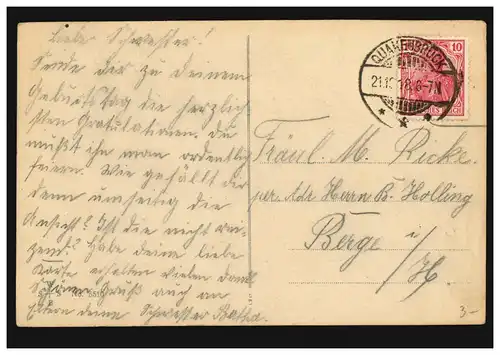 Liebe Schwester!
Sende dir zu deinem
Geburtstag die herzlich-
sten Gratulationen, du
mußt ihn man ordentlich
feiern. Wie gefällt dir
denn umseitig die
Ansicht? Ist die nicht rei-
zend? Habe deine liebe
Karte erhalten vielen Dank
Schönen Gruß auch an
Eltern deine Schwester
QUAKENBRÜCK
10
Fräul. M. Ricke
per Adr Herrn B. Holling
Berge i/H.
3.-